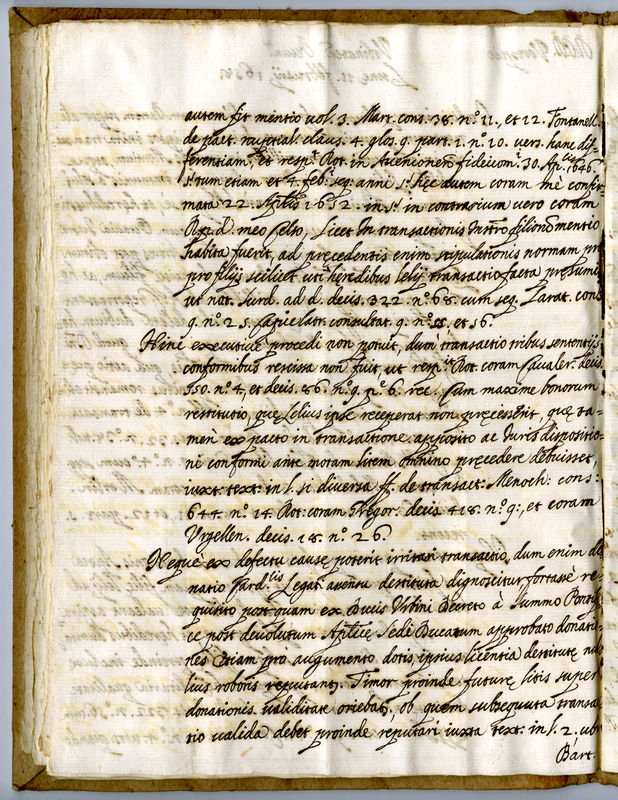 autem fit mentio vol. 3. Mart. cons. 38. n.º 11., et 12. Fontanell.
de pact. nuptial. claus. 4. glos. 9. part. 1. n.º 10. vers. hanc dif-
ferentiam, et resp.t Rot. in Avenionen fideicom.i 30. Ap.lis 1646
et 4. feb. seq. anni hęc autem coram me confir
mata 22. Aplis 1652. in contrarium vero coram
R.p.d. meo Celso, Licet In transactionis mentio
habita fuerit, ad pręcedentis enim stipulationis normam pr
pro filijs scilicet uti heredibus Lelij transactio facta pręsumi
ut not. Surd. ad d. decis. 322. n.º 68. cum seq. Zarat. cons
9. n.º 25. Capuclatr. consultat. 9. n.º 55, et 56.
Hinc executivè procedi non potuit, dum transactio tribus sententijs
conformibus rescissa non fuit, ut resp.it Rot. coram Cavaler. decis.
550. n.º 4, et decis. 86. n.º 9. p.e 6. rec. Cum maxime bonorum
restitutio, quę Lelius ipse receperat non pręcesserit, quę ta-
men ex pacto in transactione apposito ac Juris dispositio-
ni conformi ante motam litem omnino pręcedere debuisset,
iuxt. text. in l. si diversa ff. de transact. Menoch: cons:
644. n.º 14. Rot: coram Gregor. decis. 418. n.º 9:, et coram
Vrgellen. decis. 18. n.º 26.
Neque ex defectu causę poterit irritari transactio, dum enim do
natio Card.lis Legati assensu destituta dignoscitur fortassè re-
quisito postquam ex Ducis Urbini Decreto à Summo Pontifi
ce post devolutum Aplicę Sedi Ducatum approbato donatio-
nes etiam pro augumento dotis ipsius licentia destitutę nul
lius roboris reputant.r Timor proinde futurę litis super
donationis validitate oriebat.r, ob quem subsequuta transac
tio valida debet proinde reputari iuxta text. in l. 2. ubi
Bart.